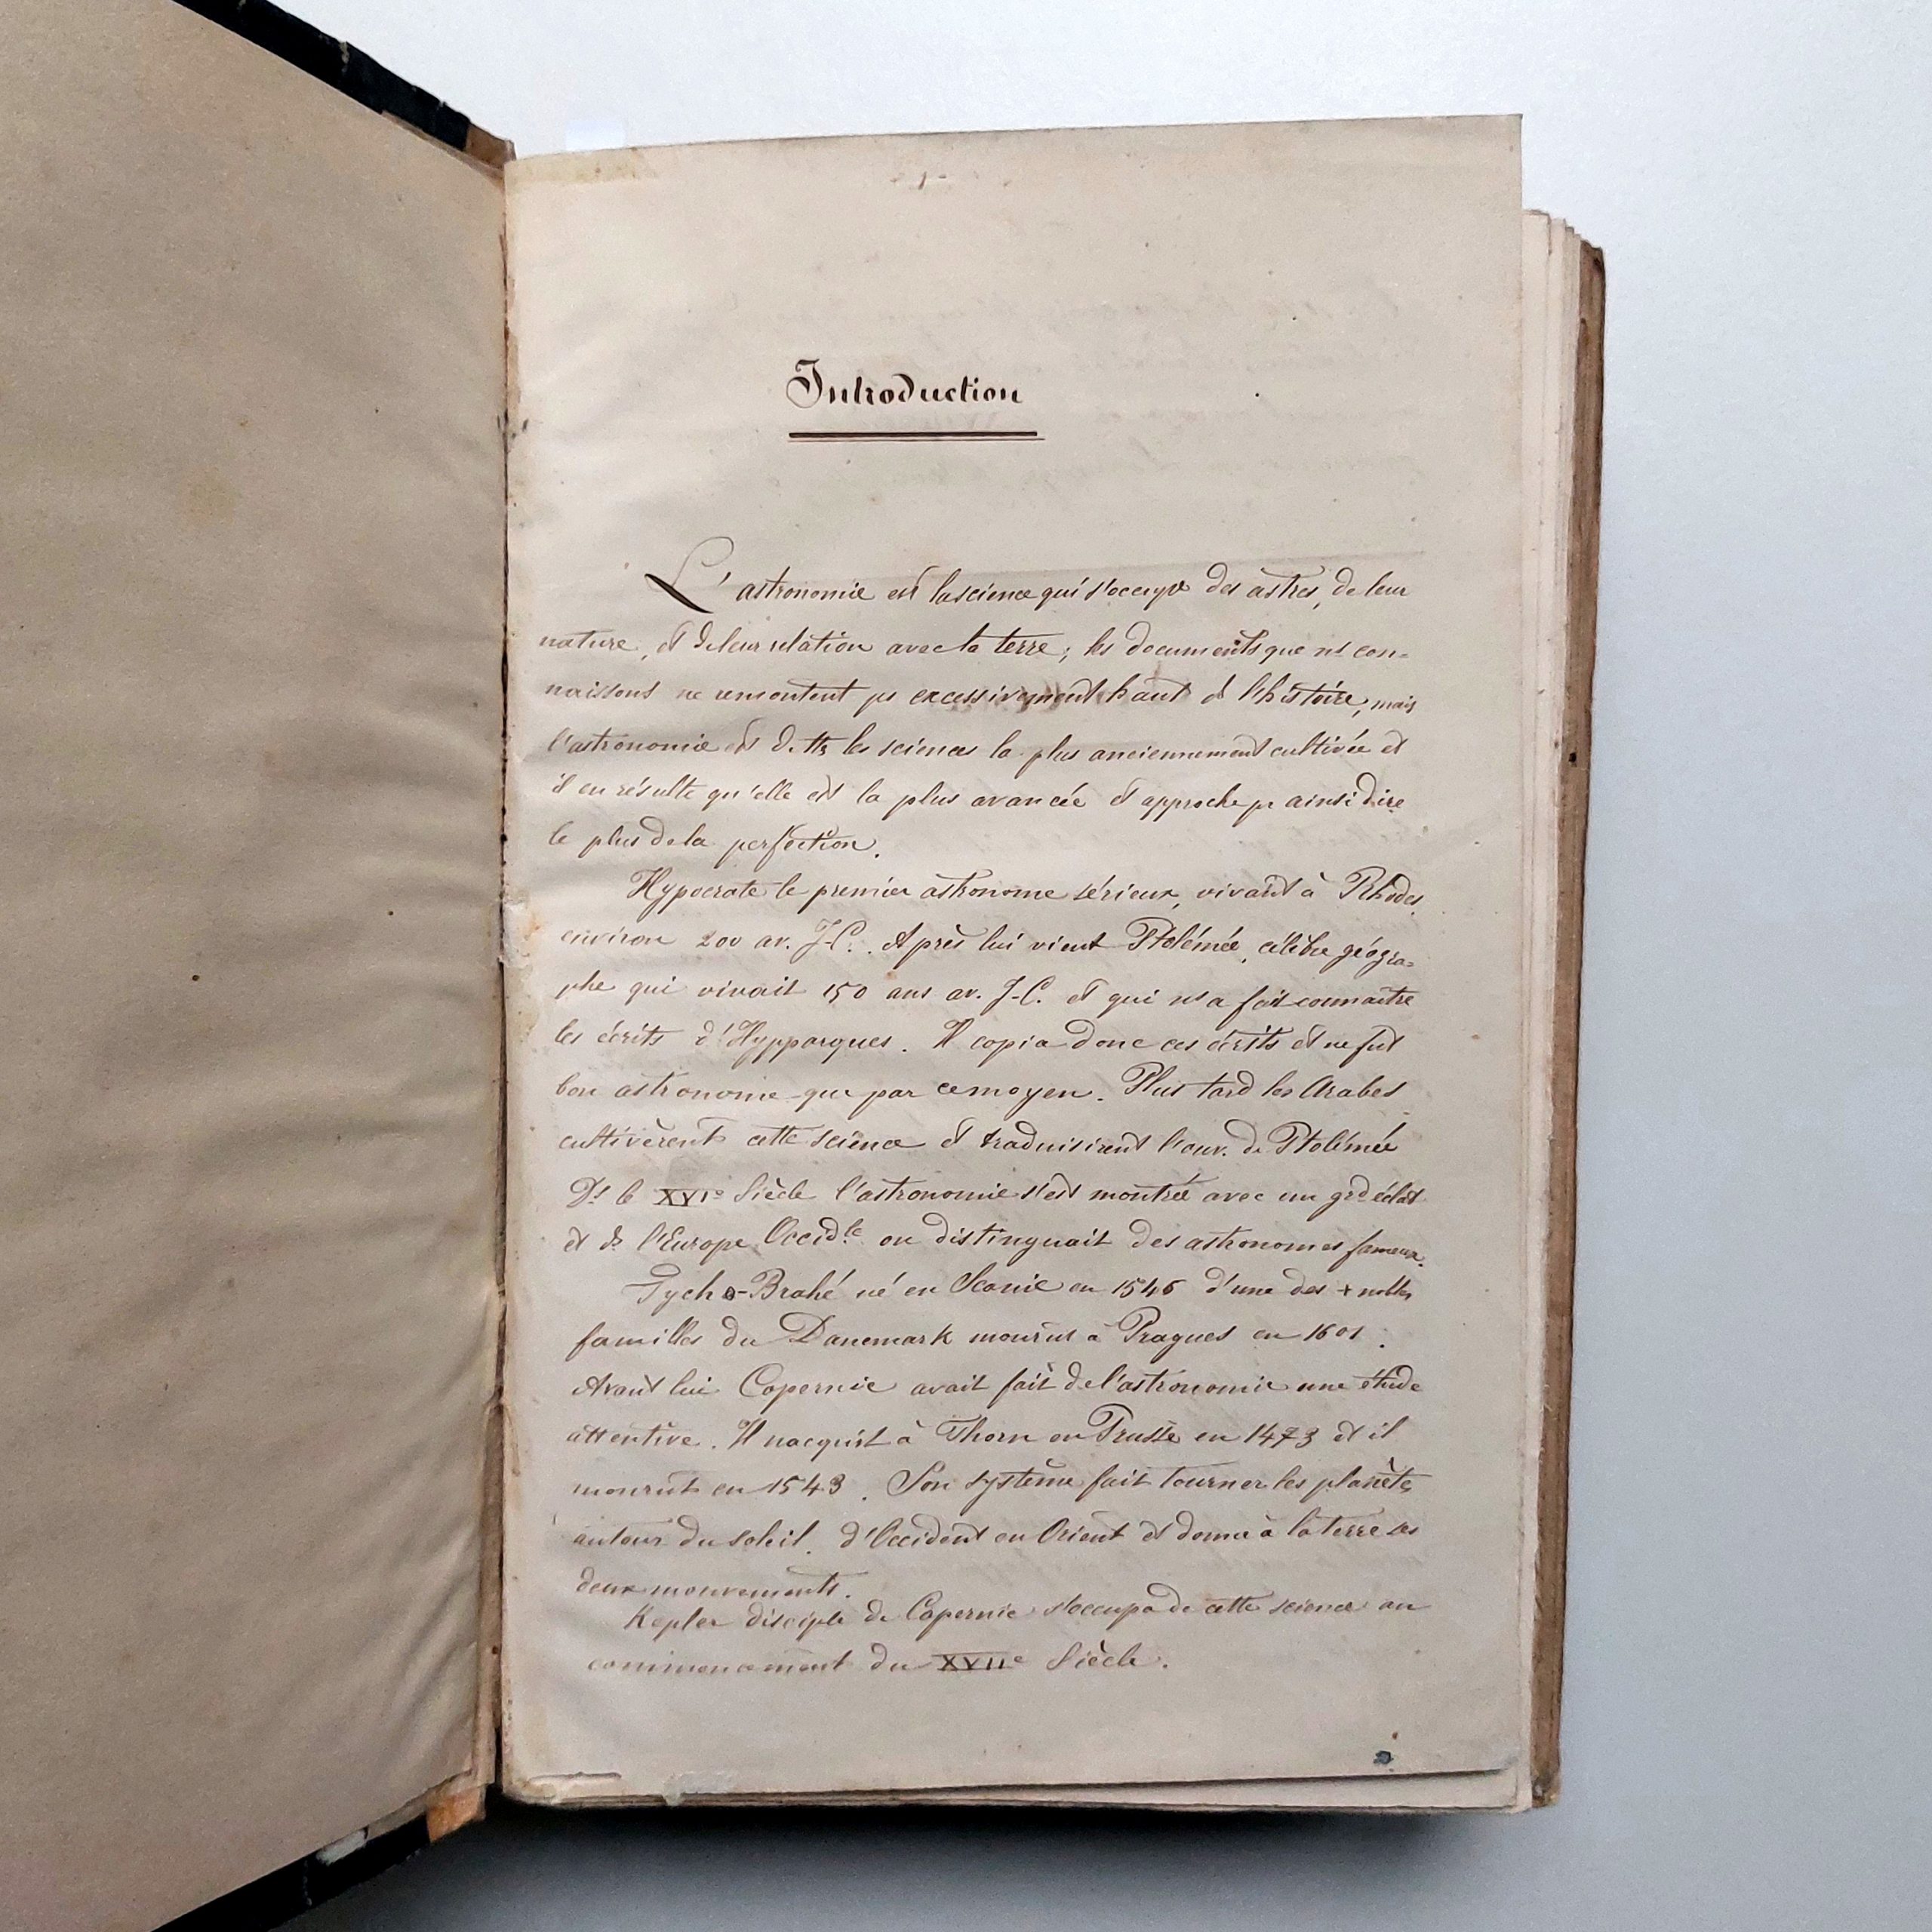 1-
Introduction
L'astronomie est la science qui s'occupe des astres, de leur
nature, et de leur relation avec la terre; les documents que ns con=
naissons ne remontent ps excessivement haut ds l'histoire, mais
l'astronomie est de ttes les sciences la plus anciennement cultivée et
il en résulte qu'elle est la plus avancée et approche pr ainsi dire
le plus de la perfection.
Hypocrate le premier astronome sérieux, vivait à Rhodes
environ 200 av. J-C. Après lui vient Ptolémée, célèbre géogra=
phe qui vivait 150 ans av. J-C. et qui ns a fait connaître
les écrits d'Hypparques. Il copia donc ces écrits et ne fut
bon astronome que par ce moyen. Plus tard les Arabes
cultivèrent cette science et traduisirent l'ouv. de Ptolémée
Ds le XVIe Siècle l'astronomie s'est montrée avec un grd éclat
et ds l'Europe Occidle on distinguait des astronomes fameux.
Tycho-Brahé né en Scanie en 1546 d'une des + nobles
familles du Danemark mourut à Pragues en 1601.
Avant lui Copernic avait fait de l'astronomie une étude
attentive. Il nacquit à Thorn en Prusse en 1473 et il
mourut en 1543. Son système fait tourner les planètes
autour du soleil, d'Occident en Orient et donne à la terre ses
deux mouvements.
Kepler disciple de Copernic s'occupa de cette science au
commencement du XVIIe Siècle.